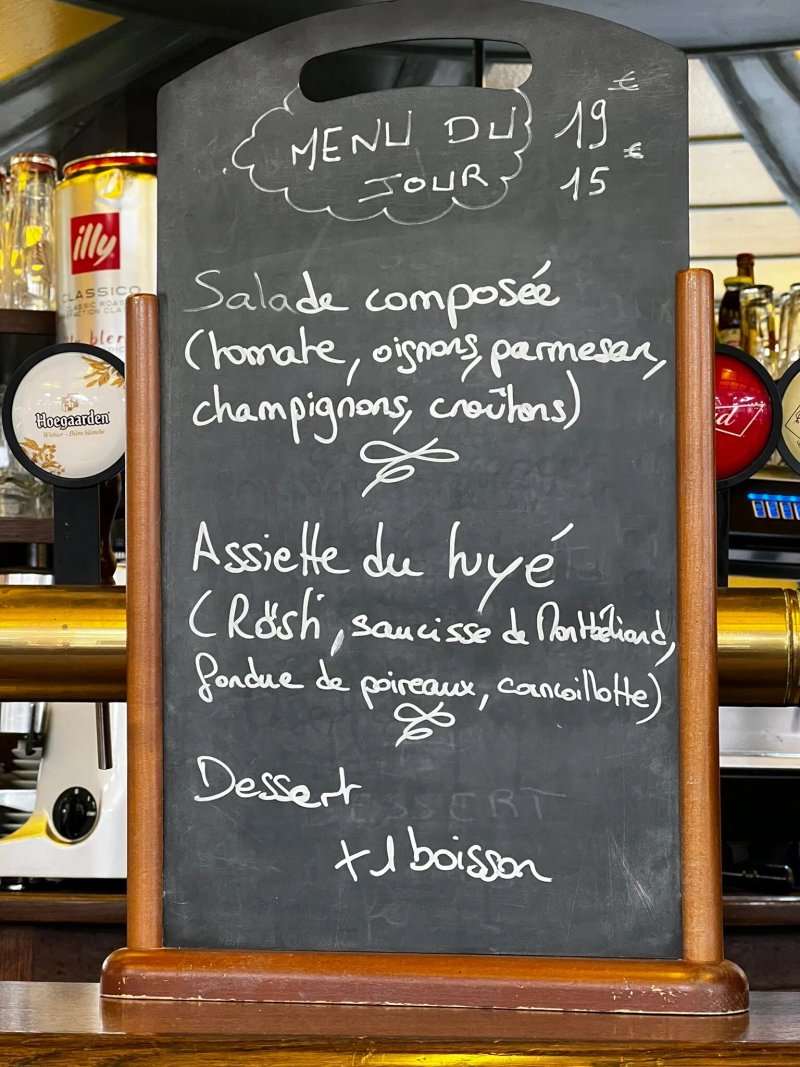 MENU DU
JOUR
19 €
15 €
Salade composée
(tomate, oignons, parmesan,
champignons, croûtons)
Assiette du tuyé
(Rösti, saucisse de Montbéliard,
fondue de poireaux, cancoillotte)
Dessert
DESSERT
+1 boisson
illy
CLASSICO
CLASSIC ROAST
blend
Hoegaarden
Witbier - Bière blanche